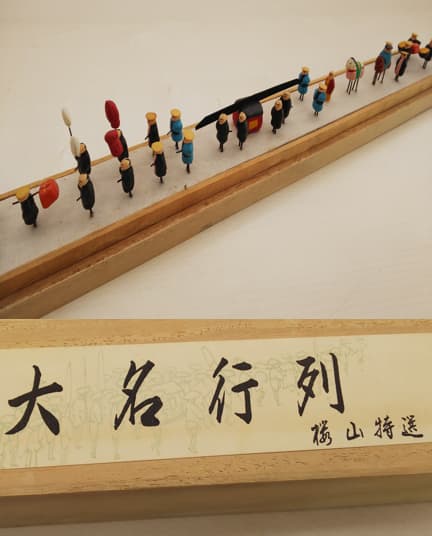 大名行列
桜山特選